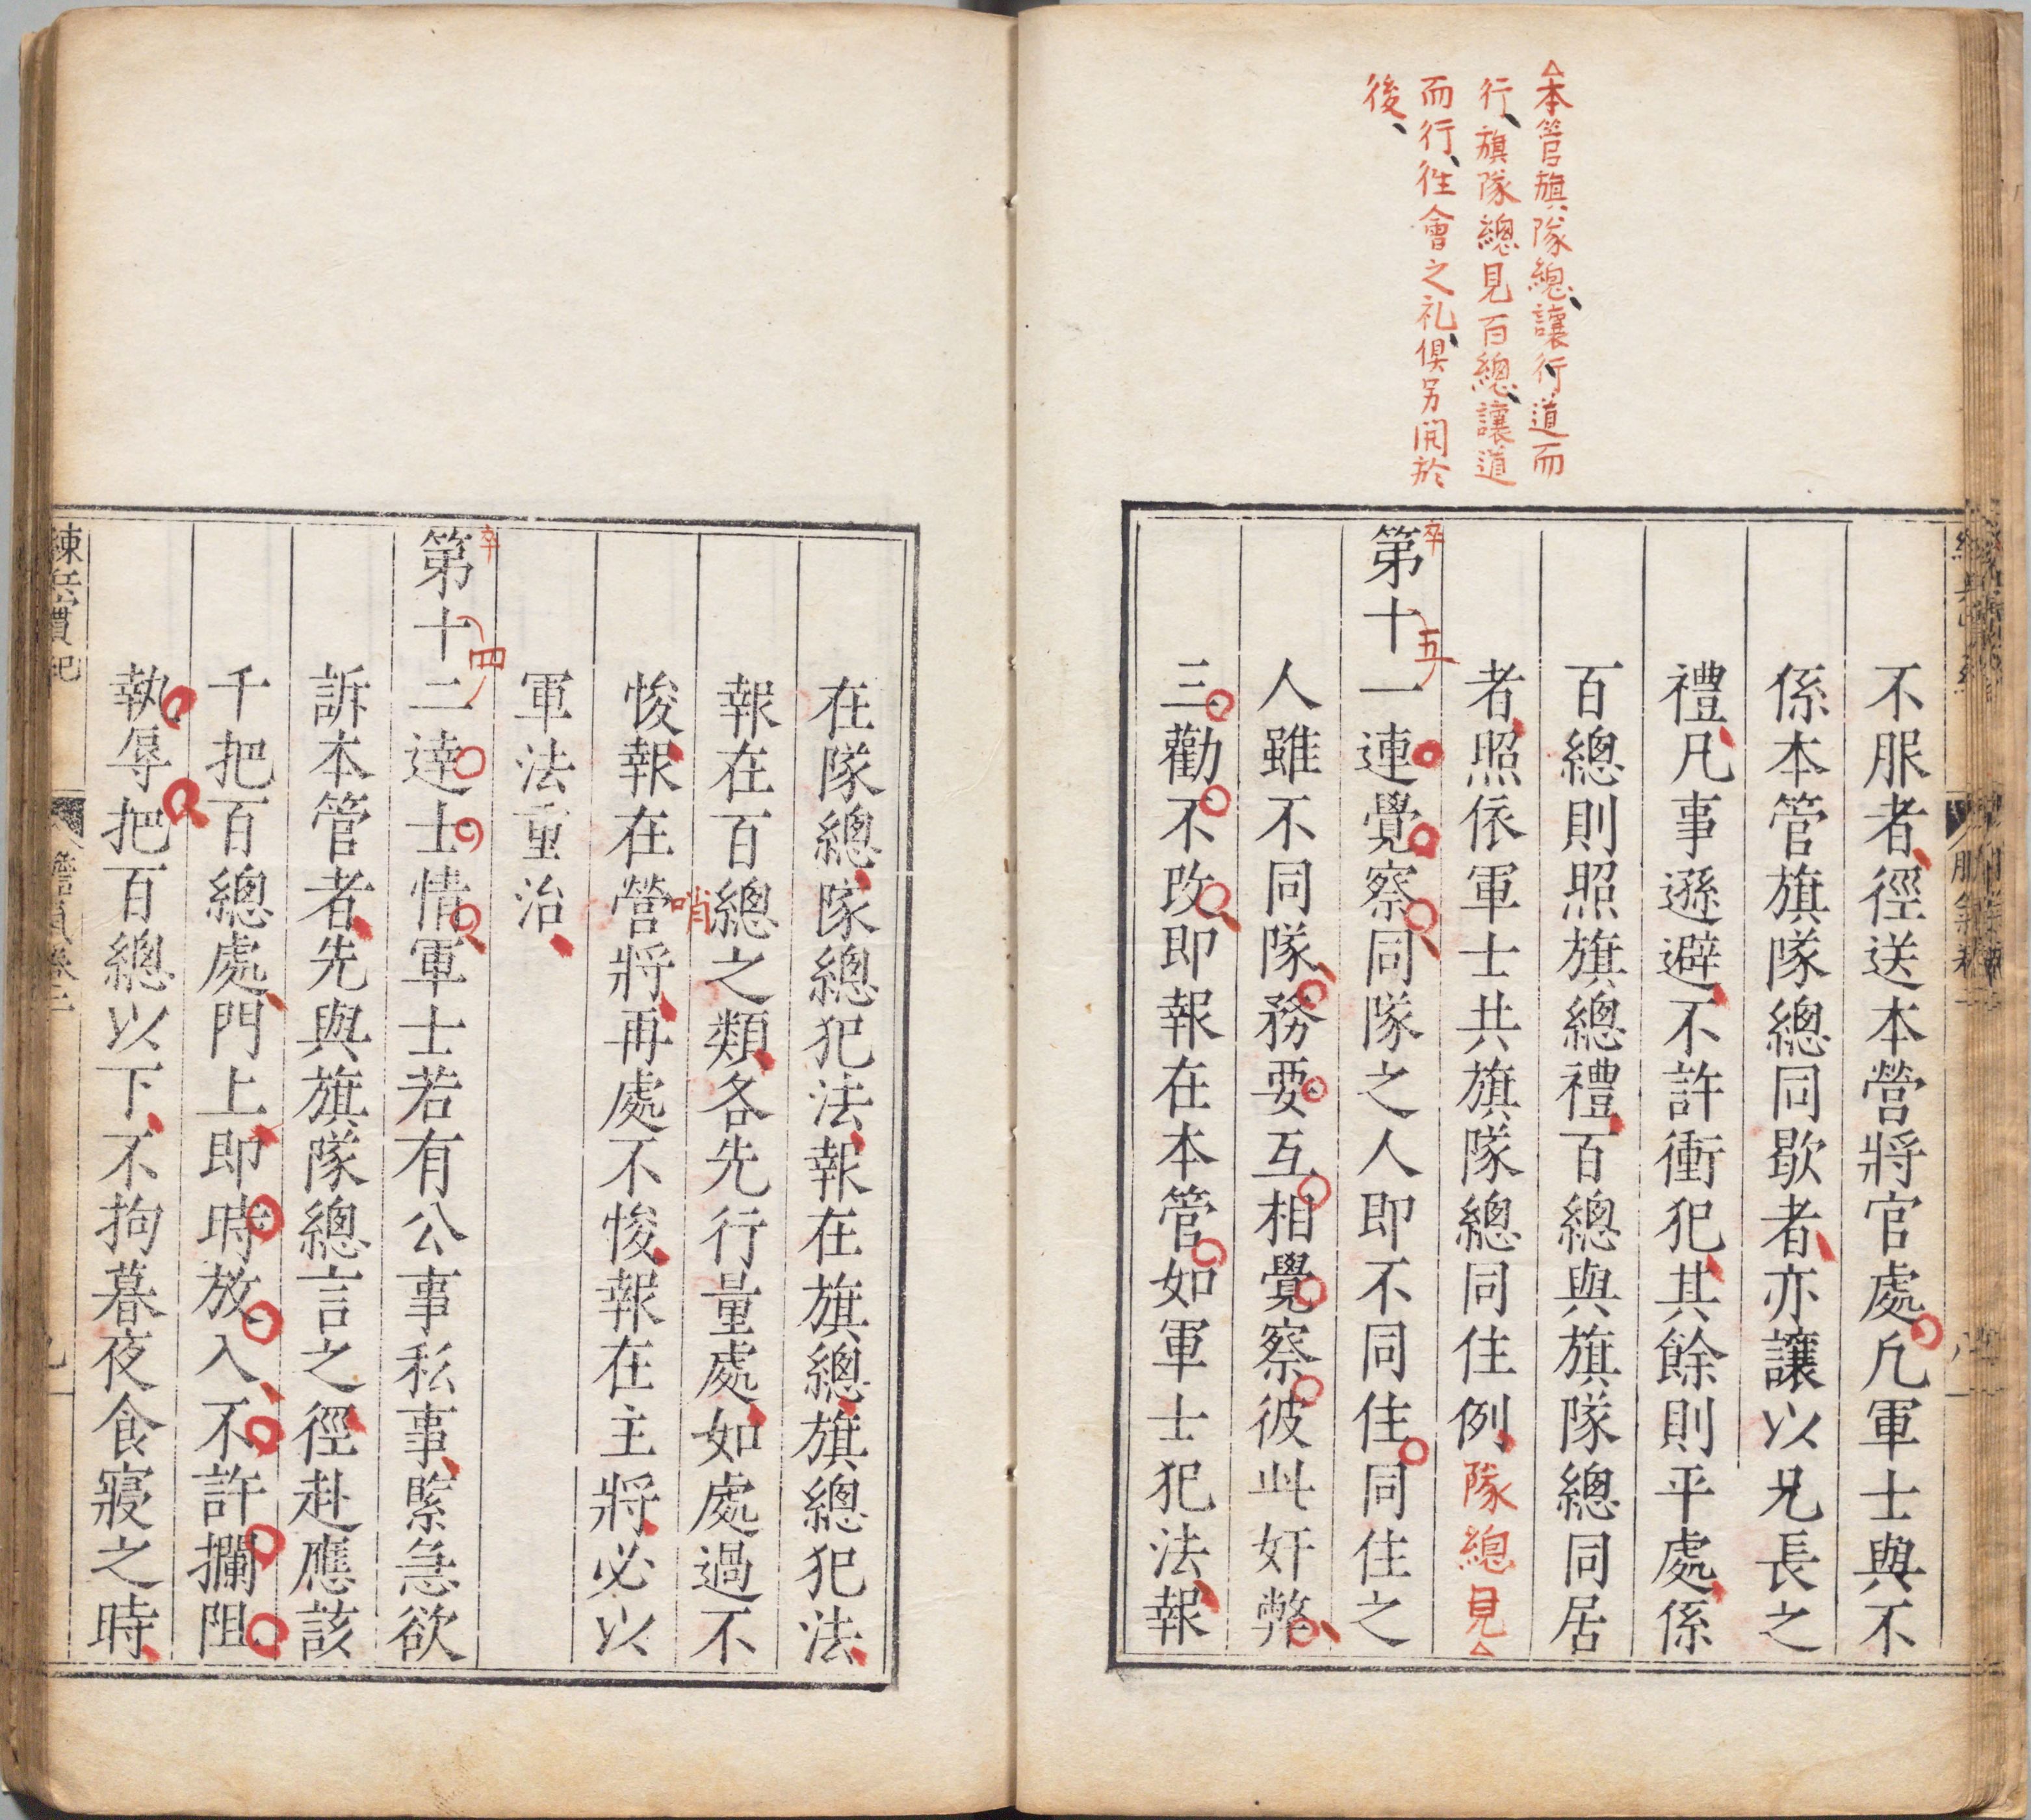 △本管旗隊總、讓行道而
行、旗隊總見百總、讓道
而行、徃會之礼、俱另開於
後、
不服者徑送本營將官處凡軍士與不
係本管旗隊總同歇者亦讓以兄長之
禮凡事遜避不許衝犯其餘則平處係
百總則照旗總禮百總與旗隊總同居
者照依軍士共旗隊總同住例隊總見△
卒
第十一連覺察同隊之人即不同住同住之
五
人雖不同隊務要互相覺察彼此奸弊
三勸不改即報在本管如軍士犯法報
在隊總隊總犯法報在旗總旗總犯法
報在百總之類各先行量處如處過不
哨
悛報在營將再處不悛報在主將必以
軍法重治
卒
第十二達士情軍士若有公事私事緊急欲
四
訴本管者先與旗隊總言之徑赴應該
千把百總處門上即時放入不許攔阻
執辱把百總以下不拘暮夜食寢之時
練兵實紀